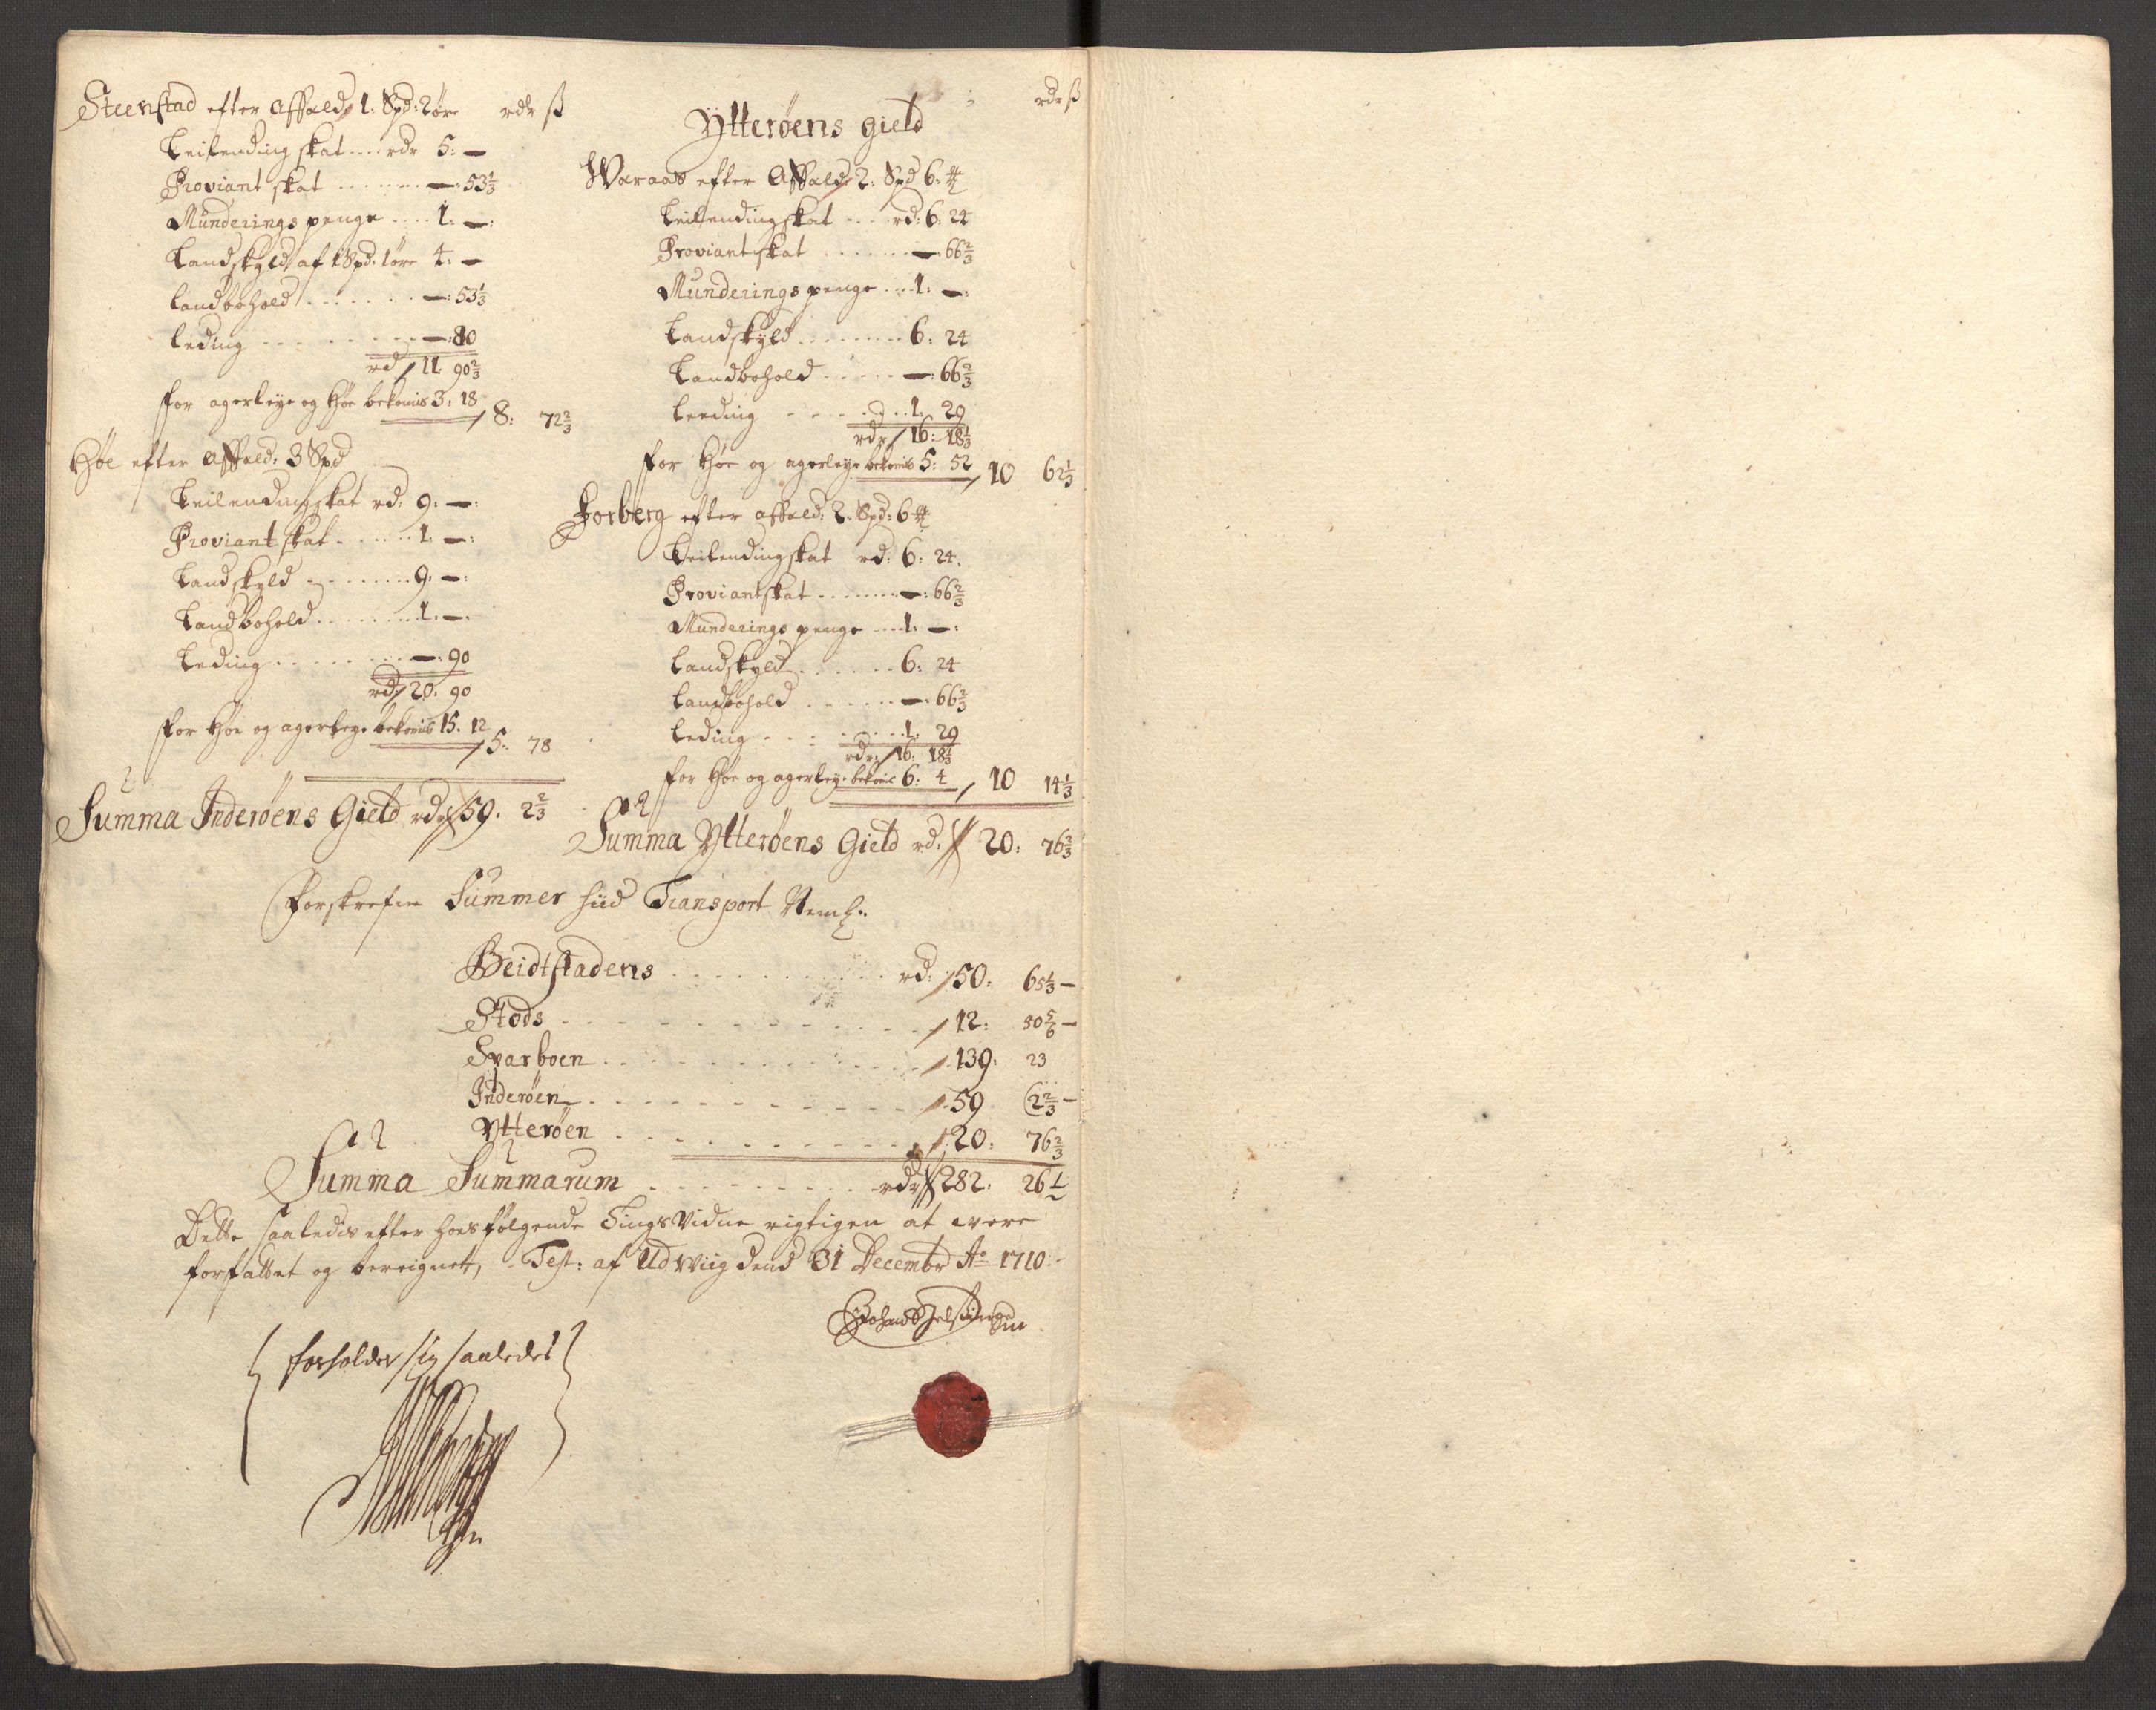 Steenstad efter Affald 1: Spd: 2 øre rdr ß
Leilending skat .... rdr 5: —
Proviant skat ........ —: 53 1/3
Munderings penge .... 1: —:
Landskyld af 1 Spd: 1 øre 4: —
Landbohold ....... —: 53 1/3
leding ........ —: 80
rd 11 90 2/3
for agerleye og Høe bekomis 3: 18 8: 72 2/3
Høe efter Affald: 3 Spd
Leilending skat rd: 9: —:
Proviant skat ..... 1: —:
Landskyld ....... 9: —:
Landbohold ....... 1: —:
Leding ........ —: 90
rd 20: 90
for Høe og agerleye bekomis 15: 12 5: 78
Summa Inderøens Gield rdr 59: 2 2/3
Ytterøens gield rdr ß
Waraas efter Affald 2: Spd 6: ℔
Leilending skat ... rd: 6: 24
Proviantskat ...... —: 66 2/3
Munderings penge ... 1: —:
Landskyld ....... 6: 24
Landbohold ..... —: 66 2/3
Leeding ..... 1: 29
rdr 16: 18 1/3
for Høe og agerleye bekomis 5: 52 10 62 1/3
Forberg efter affald: 2: Spd: 6 ℔
Leilending skat rd: 6: 24.
Proviantskat ....... —: 66 2/3
Munderings penge ... 1: —:
Landskyld ...... 6: 24
Landbohold ...... —: 66 2/3
leding ...... 1: 29
rdr 16: 18 1/3
for Høe og agerleye bekomis 6: 4 10 14 1/3
Summa Ytterøens Gield rd: 20: 76 2/3
Forskrefne Summer hiid Transport Neml:
Beidtstadens .......... rd: 50: 65 1/3 —
Stods ............ 12: 50 5/6 —
Sparboen ............ 139: 23
Inderøen ............ 59 2 2/3 —
Ytterøen ............ 20: 76 2/3
Summa Summarum ......... rdr 282: 26 1/2
Dette saaledis efter hoesfølgende Tings Vidne rigtigen at were
forfattet og bereignet, Test: af Udwiig dend 31 Decembr Ao 1710:
forholder sig saaledes